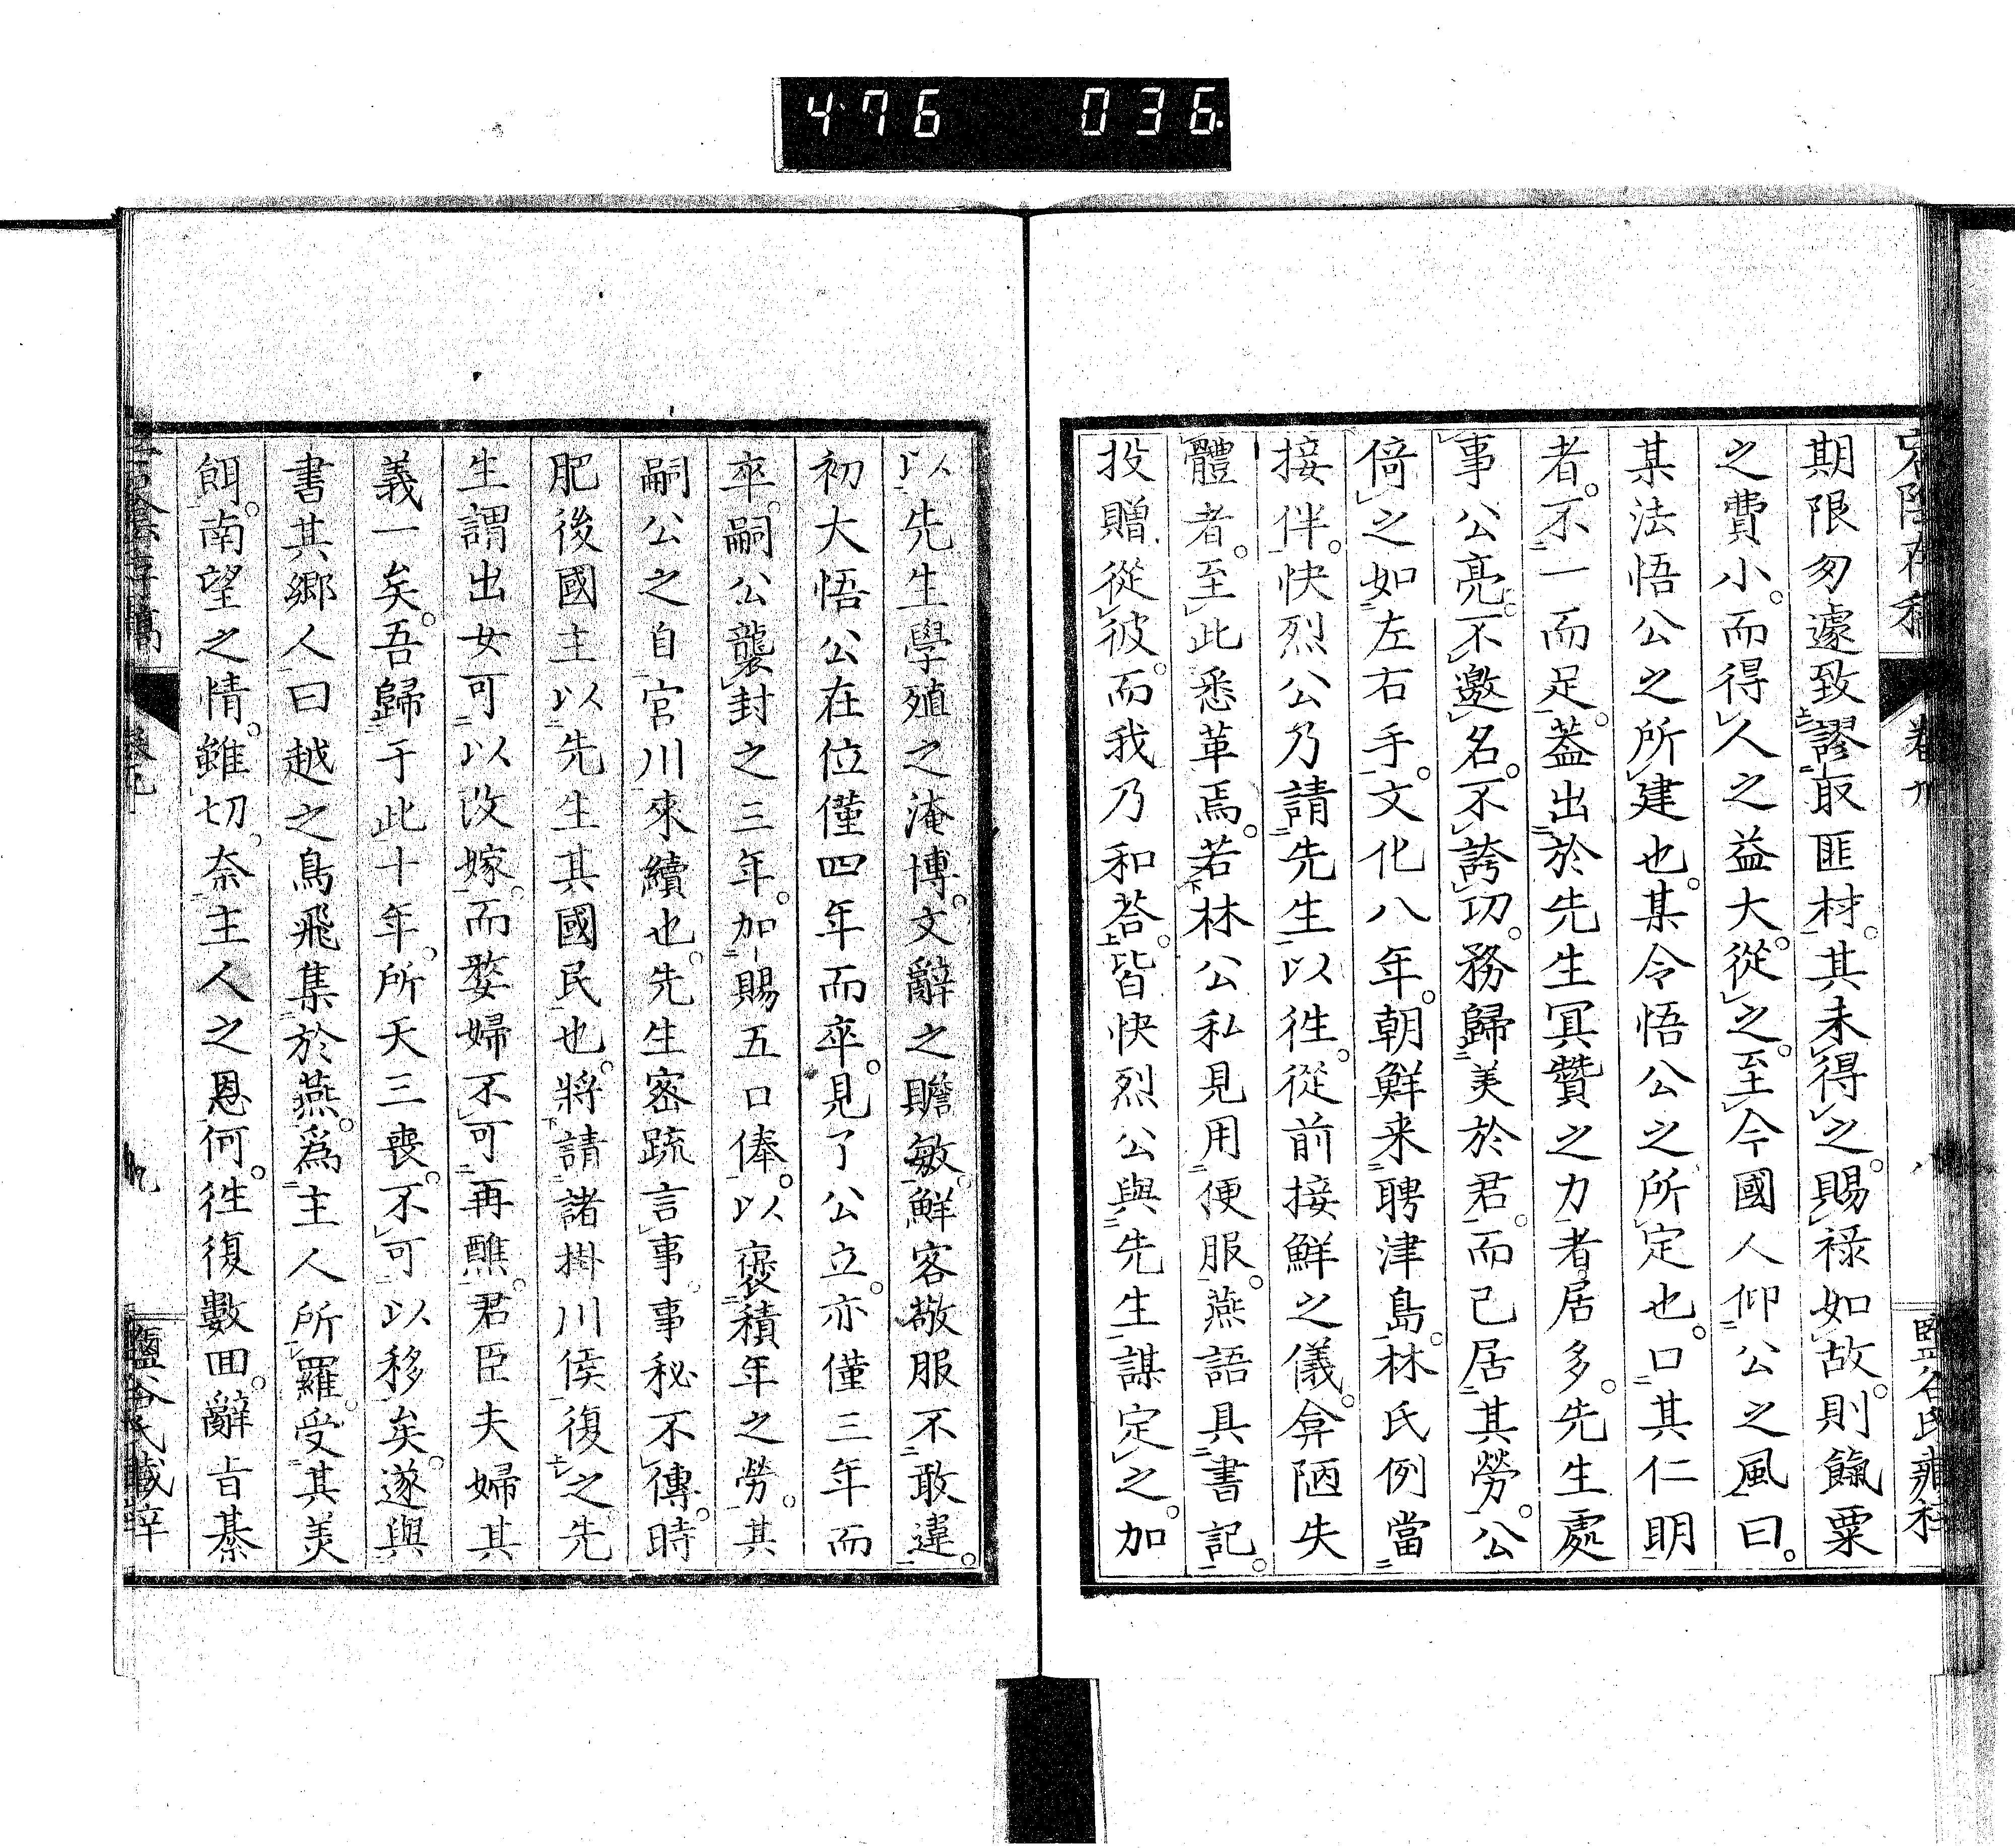 476 036
期限匆遽致謬取匪材。其未得之。賜祿如故。則餼粟
之費小。而得人之益大。從之。至今國人仰公之風曰。
某法悟公之所建也。某令悟公之所定也。口其仁明
者。不一而足。蓋出於先生冥贊之力者居多。先生處
事公亮。不邀名。不誇功。務歸美於君。而己居其勞。公
倚之如左右手。文化八年。朝鮮来聘津島。林氏例當
接伴。快烈公乃請先生以往。從前接鮮之儀。弇陋失
體者。至此悉革焉。若林公私見用便服。燕語具書記。
投贈從彼。而我乃和荅。皆快烈公與先生謀定之。加
以先生學殖之淹博。文辭之贍敏。鮮客敬服不敢違。
初大悟公在位僅四年而卒。見了公立。亦僅三年而
卒。嗣公襲封之三年。加賜五口俸。以褒積年之勞。其
嗣公之自宮川來續也。先生密疏言事。事秘不傳。時
肥後國主以先生其國民也。將請諸掛川侯復之先
生謂出女可以改嫁。而婺婦不可再醮。君臣夫婦其
義一矣。吾歸于此十年。所天三喪。不可以移矣。遂與
書其鄉人曰越之鳥飛集於燕。爲主人所羅。受其美
餌。南望之情。雖切。奈主人之恩何。往復數回。辭旨綦